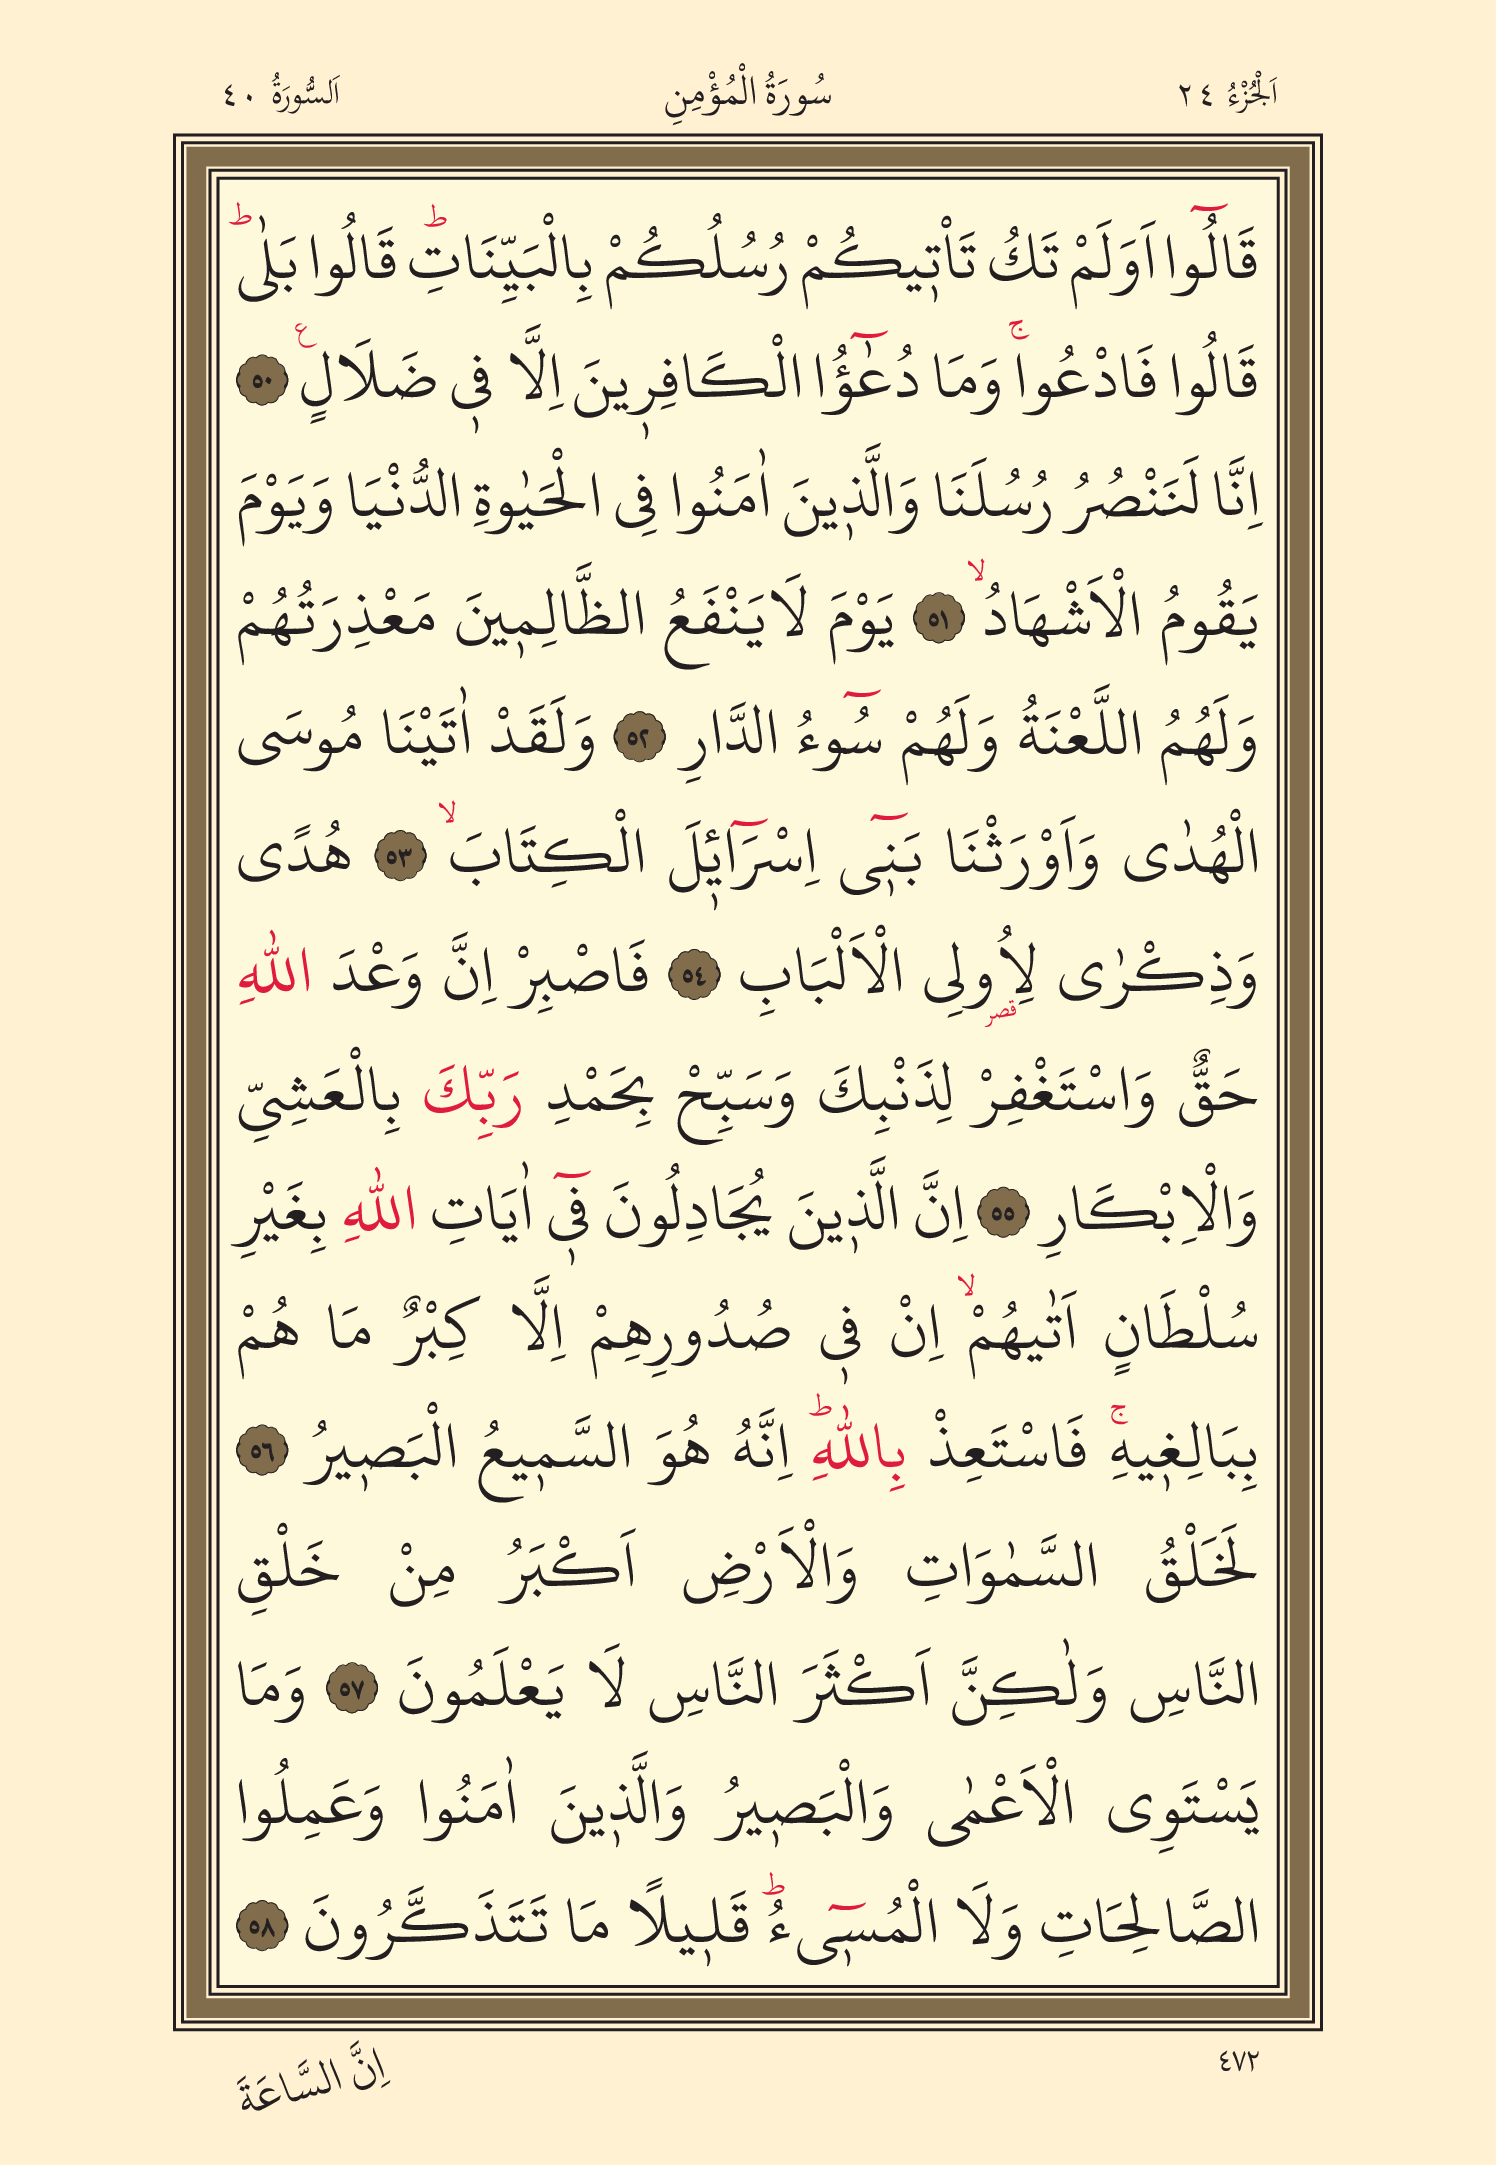 اَلْجُزْءُ ٢٤
سُورَةُ الْمُؤْمِنِ
اَلسُّورَةُ ٤٠
قَالُٓوا اَوَلَمْ تَكُ تَأْت۪يكُمْ رُسُلُكُمْ بِالْبَيِّنَاتِۜ قَالُوا بَلٰىۜ
قَالُوا فَادْعُواۚ وَمَا دُعٰٓؤُا الْكَافِر۪ينَ اِلَّا ف۪ي ضَلَالٍ۟ ﴿٥٠﴾
اِنَّا لَنَنْصُرُ رُسُلَنَا وَالَّذ۪ينَ اٰمَنُوا فِي الْحَيٰوةِ الدُّنْيَا وَيَوْمَ
يَقُومُ الْاَشْهَادُۙ ﴿٥١﴾ يَوْمَ لَا يَنْفَعُ الظَّالِم۪ينَ مَعْذِرَتُهُمْ
وَلَهُمُ اللَّعْنَةُ وَلَهُمْ سُٓوءُ الدَّارِ ﴿٥٢﴾ وَلَقَدْ اٰتَيْنَا مُوسَى
الْهُدٰى وَاَوْرَثْنَا بَن۪ٓي اِسْرَٓائ۪لَ الْكِتَابَۙ ﴿٥٣﴾ هُدًى
وَذِكْرٰى لِاُو۬لِي الْاَلْبَابِ ﴿٥٤﴾ فَاصْبِرْ اِنَّ وَعْدَ اللّٰهِ
قصر
حَقٌّ وَاسْتَغْفِرْ لِذَنْبِكَ وَسَبِّحْ بِحَمْدِ رَبِّكَ بِالْعَشِيِّ
وَالْاِبْكَارِ ﴿٥٥﴾ اِنَّ الَّذ۪ينَ يُجَادِلُونَ ف۪ٓي اٰيَاتِ اللّٰهِ بِغَيْرِ
سُلْطَانٍ اَتٰيهُمْۙ اِنْ ف۪ي صُدُورِهِمْ اِلَّا كِبْرٌ مَا هُمْ
بِبَالِغ۪يهِۚ فَاسْتَعِذْ بِاللّٰهِۜ اِنَّهُ هُوَ السَّم۪يعُ الْبَص۪يرُ ﴿٥٦﴾
لَخَلْقُ السَّمٰوَاتِ وَالْاَرْضِ اَكْبَرُ مِنْ خَلْقِ
النَّاسِ وَلٰكِنَّ اَكْثَرَ النَّاسِ لَا يَعْلَمُونَ ﴿٥٧﴾ وَمَا
يَسْتَوِي الْاَعْمٰى وَالْبَص۪يرُ وَالَّذ۪ينَ اٰمَنُوا وَعَمِلُوا
الصَّالِحَاتِ وَلَا الْمُس۪ٓيءُۜ قَل۪يلًا مَا تَتَذَكَّرُونَ ﴿٥٨﴾
٤٧٢
اِنَّ السَّاعَةَ